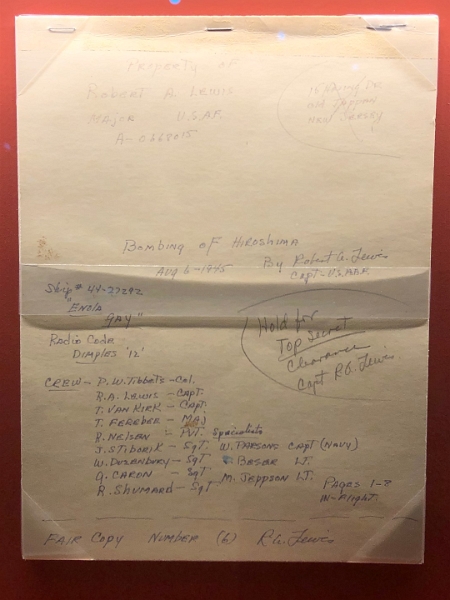 Property of
Robert A. Lewis
Major U.S.A.F.
Old Tappan
New Jersey
Bombing of Hiroshima
Aug 6-1945
By Robert A. Lewis
Capt-U.S.A.A.F.
Ship # 44-27292
"Enola
Gay"
Radio Code
Dimples '12'
Hold for
Top Secret
Clearance
Capt R.A. Lewis
Crew - P.W. Tibbets - Col.
R.A. Lewis - Capt.
T. Van Kirk - Capt.
T. Ferebee - Maj
R. Nelson - Pvt. Specialists
J. Stiborik - Sgt. W. Parsons Capt (Navy)
W. Duzenbury - Sgt. Beser Lt.
G. Caron - Sgt M. Jeppson Lt.
R. Shumard - Sgt
Pages 1-8
In-Flight.
Fair Copy Number (6) R.A. Lewis